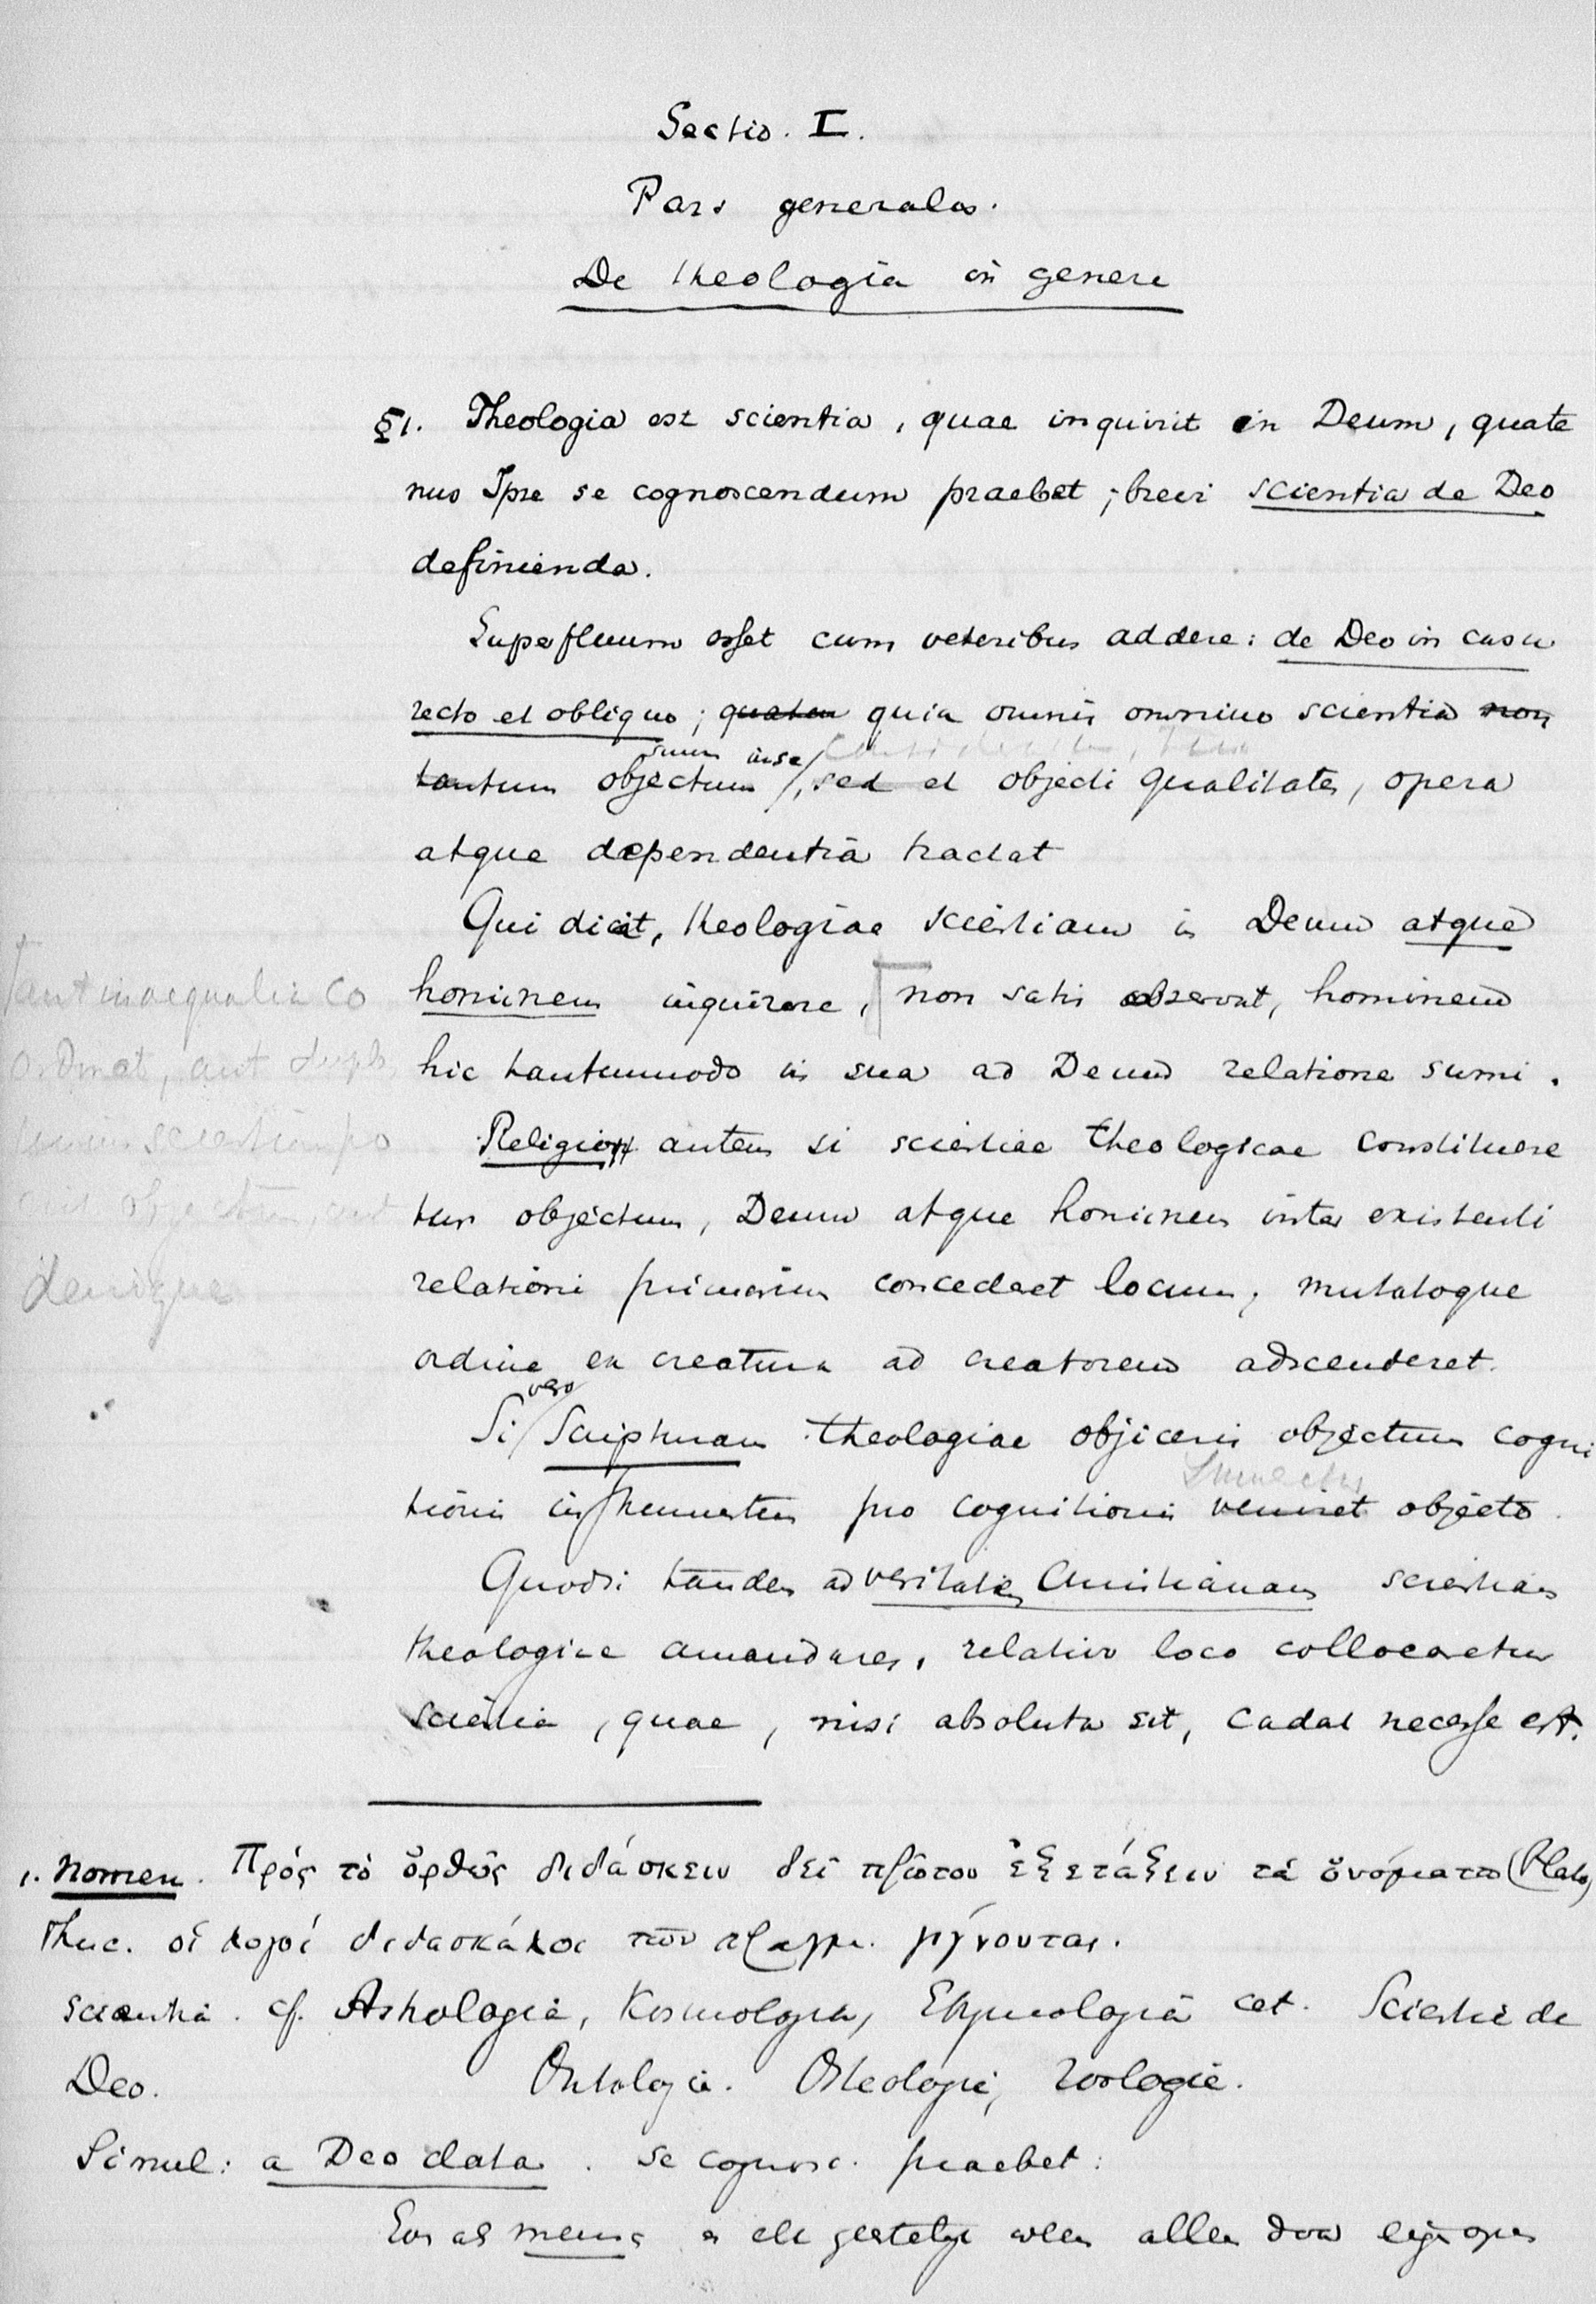 Sectio. I.
Pars generalis.
De theologia in genere
§1. Theologia est scientia, quae inquirit in Deum, quate
nus Ipse se cognoscendum praebet; brevi scientia de Deo
definienda.
Superfluum esset cum veteribus addere: de Deo in casu
recto et obliquo; quaten quia omnis omnino scientia non
suum in se
tantum objectum, sed et objecti qualitates, opera
atque dependentia tractat
Qui dicit, theologiae scientiam in Deum atque
hominem inquirere, non satis observat, hominem
hic tantummodo in sua ad Deum relatione sumi.
Religio autem si scientiae theologicae constituere
tur objectum, Deum atque hominem inter existenti
relationi primarium concederet locum, mutatoque
ordine ex creatura ad creatorem adscenderet.
vero
Si Scripturam theologiae objiceris objectum cogni
tionis pro cognitionis veniret objecto.
Quodsi tandem ad veritatem Christianam scientiam
theologiae amandares, relativo loco collocaretur
scientia, quae, nisi absoluta sit, cadat necesse est.
aut inaequalia co
ordinat, aut dupl
scientiam po
aut objectum, aut
denique
1. Nomen. Πρός τὸ ὄρθῶς διδάσκειν δεῖ πρῶτον ἐξετάζειν τά ὄνόματα (Plato)
Thuc. οἱ λογοί διδασκάλοι τῶν πραγμ. γίγνονται.
scientia. cf. Astrologia, Kosmologia, Etymologia cet. Scientia de
Deo. Ontologia. Osteologie, Zoologie.
Simul: a Deo data. se cognosc. praebet:
mens alles